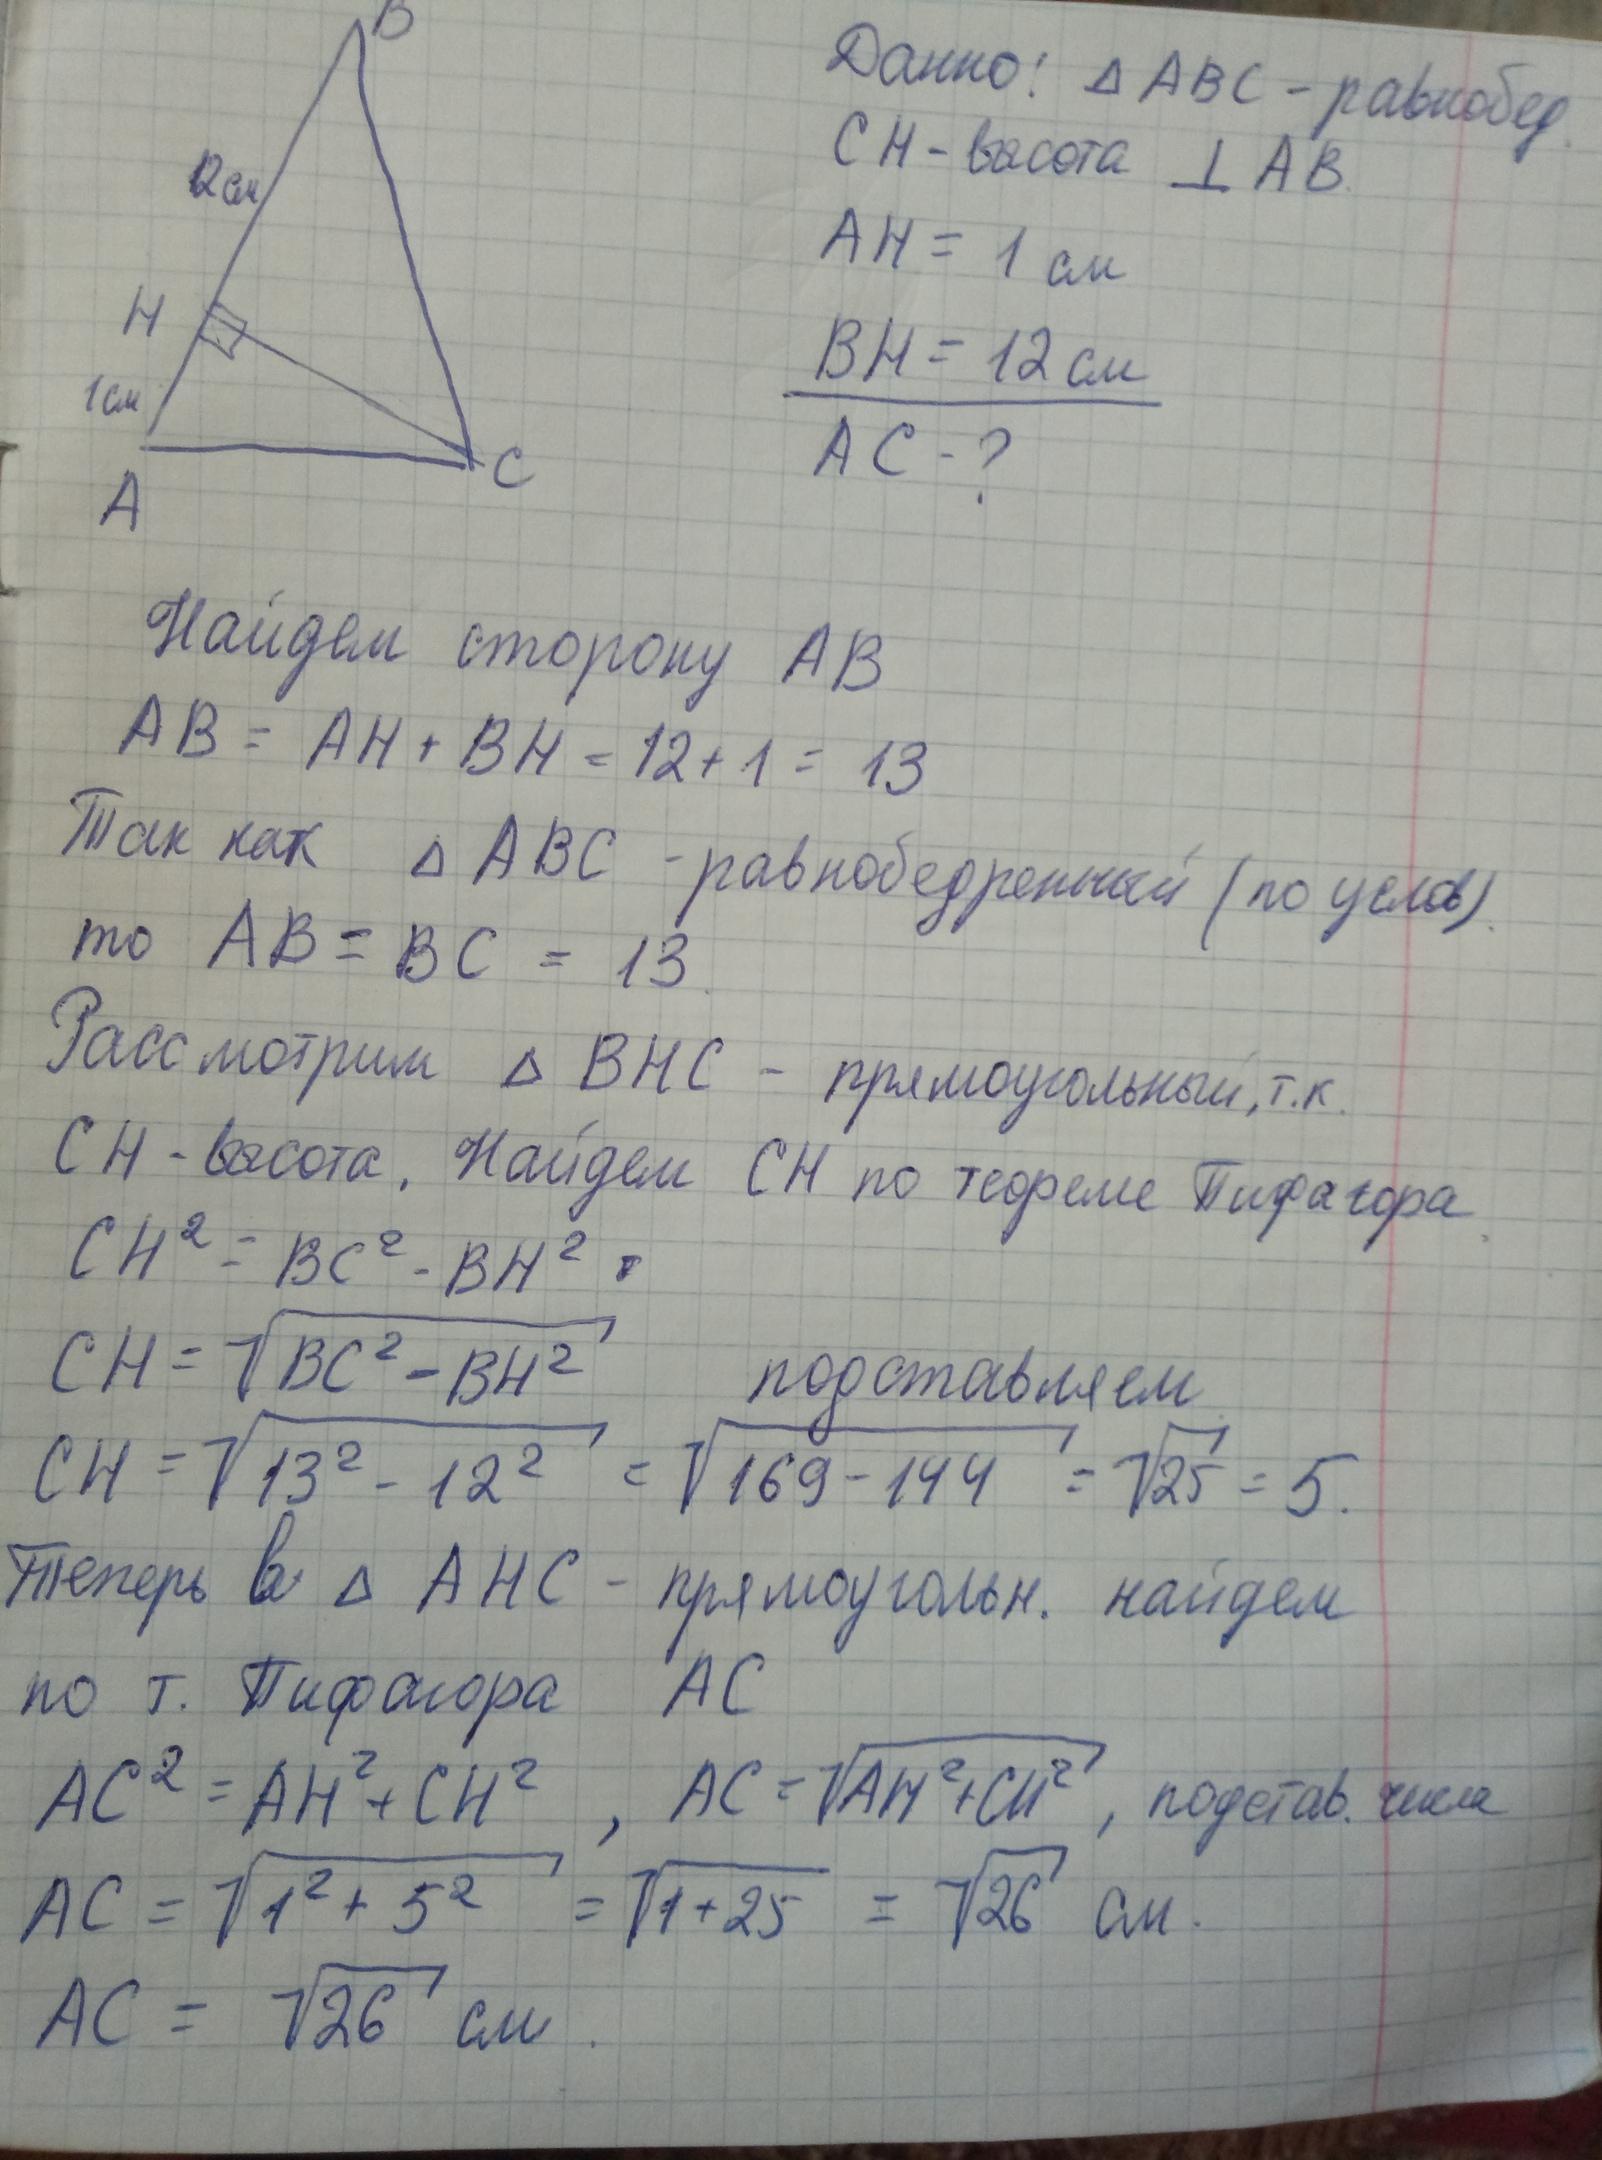 B
12см
H
1см
A
C
Данно: △ ABC - равнобед.
CH - высота ⊥ AB.
AH = 1 см
BH = 12 см
AC - ?
Найдем сторону AB
AB = AH + BH = 12 + 1 = 13
Так как △ ABC - равнобедренный (по услов).
то AB = BC = 13.
Рассмотрим △ BHC - прямоугольный, т.к.
CH - высота. Найдем CH по теореме Пифагора.
CH² = BC² - BH².
CH = √(BC² - BH²) подставляем
CH = √(13² - 12²) = √(169 - 144) = √25 = 5.
Теперь в △ AHC - прямоугольн. найдем
по т. Пифагора AC
AC² = AH² + CH², AC = √(AH² + CH²), подстав. числа
AC = √(1² + 5²) = √(1 + 25) = √26 см.
AC = √26 см.